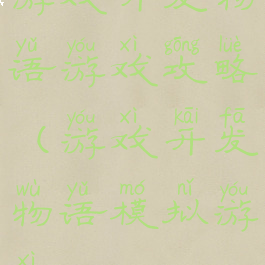 游戏开发物
yǔ yóu xì gōng lüè
语游戏攻略
yóu xì kāi fā
(游戏开发
wù yǔ mó nǐ yóu
物语模拟游
xì